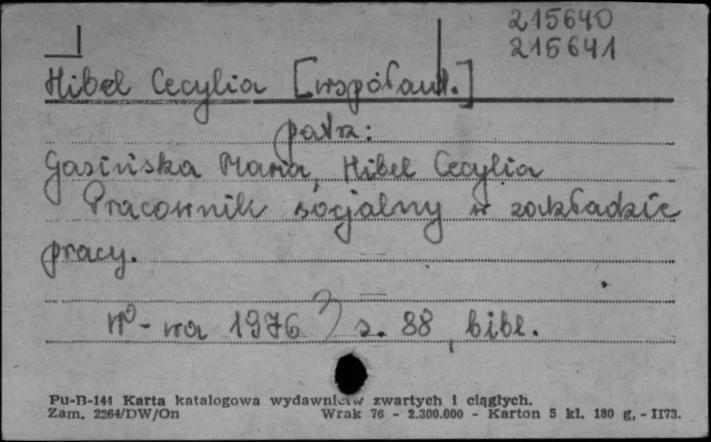 215640
215641
Hibel Cecylia [współaut.]
patrz:
Gasińska Maria, Hibel Cecylia
Pracownik socjalny w zakładzie
pracy.
W-wa 1976 s. 88, bibl.
Pu-B-144 Karta katalogowa wydawnictw zwartych i ciągłych.
Zam. 2264/DW/On Wrak 76 - 2.300.000 - Karton 5 kl. 180 g, - II73.